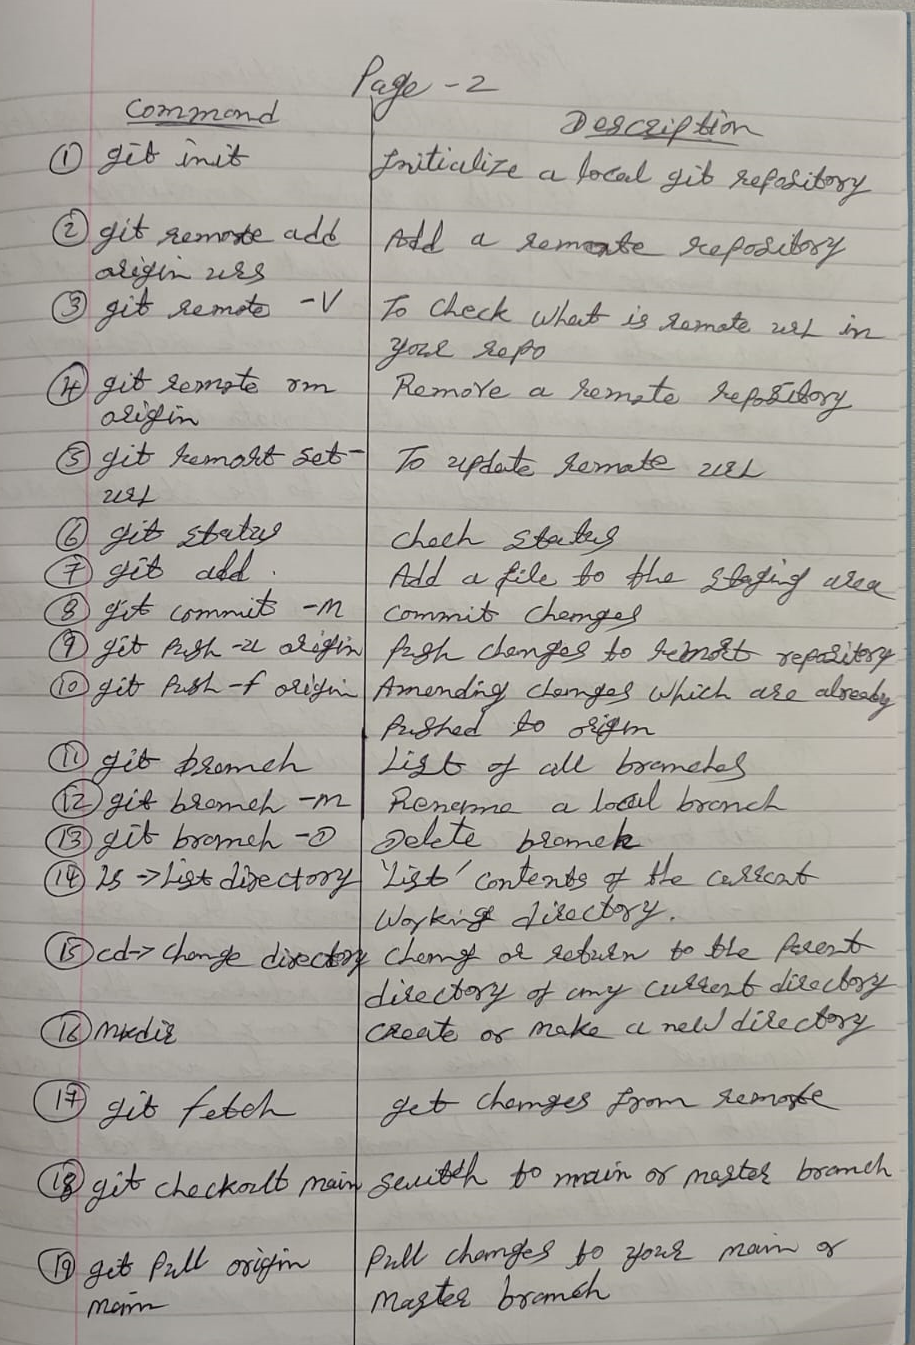 Page - 2
Command
Description
① git init
Initialize a local git repository
② git remote add
origin url
Add a remote repository
③ git remote -V
To check what is remote url in
your repo
④ git remote rm
origin
Remove a remote repository
⑤ git remort set-
url
To update remate url
⑥ git status
check status
⑦ git add .
Add a file to the staging area
⑧ git commit -m
commit changes
⑨ git Push -u origin
Push changes to remort repository
⑩ git Push -f origin
Amending changes which are already
Pushed to origin
⑪ git branch
List of all branches
⑫ git branch -m
Rename a local branch
⑬ git branch -D
Delete branch
⑭ ls → List directory
'List' contents of the current
working directory.
⑮ cd → change directory
chang or return to the Parent
directory of any current directory
⑯ mkdir
create or make a new directory
⑰ git fetch
get changes from remote
⑱ git checkout main
switch to main or master branch
⑲ git Pull origin
main
Pull changes to your main or
master branch